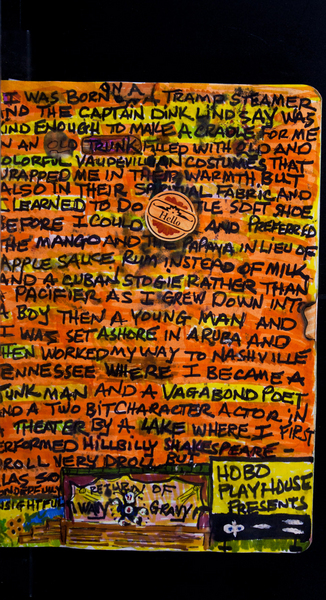 I WAS BORN ON A TRAMP STEAMER
IND THE CAPTAIN DINK LINDSAY WAS
IND ENOUGH TO MAKE A CRADLE FOR ME
N AN OLD TRUNK FILLED WITH OLD AND
OLORFUL VAUDEVILLIAN COSTUMES THAT
WRAPPED ME IN THEIR WARMTH BUT
ALSO IN THEIR SPIRITUAL FABRIC AND
I LEARNED TO DO TLE SOFT SHOE
BEFORE I COULD AND PREFERRED
THE MANGO AND THE PAPAYA IN LIEU OF
APPLE SAUCE RUM INSTEAD OF MILK
AND A CUBAN STOGIE RATHER THAN
PACIFIER AS I GREW DOWN INTO
A BOY THEN A YOUNG MAN AND
I WAS SET ASHORE IN ARUBA AND
HEN WORKED MY WAY TO NASHVILLE
ENNESSEE WHERE I BECAME A
JUNK MAN AND A VAGABOND POET
ND A TWO BIT CHARACTER ACTOR IN
THEATER BY A LAKE WHERE I FIRST
ERFORMED HILLBILLY SHAKESPEARE -
ROLL VERY DROLL BUT
LAS SO
ONDERFULLY
NSIGHTFUL
Hello
RETURN OF
WAVY GRAVY
HOBO
PLAYHOUSE
PRESENTS